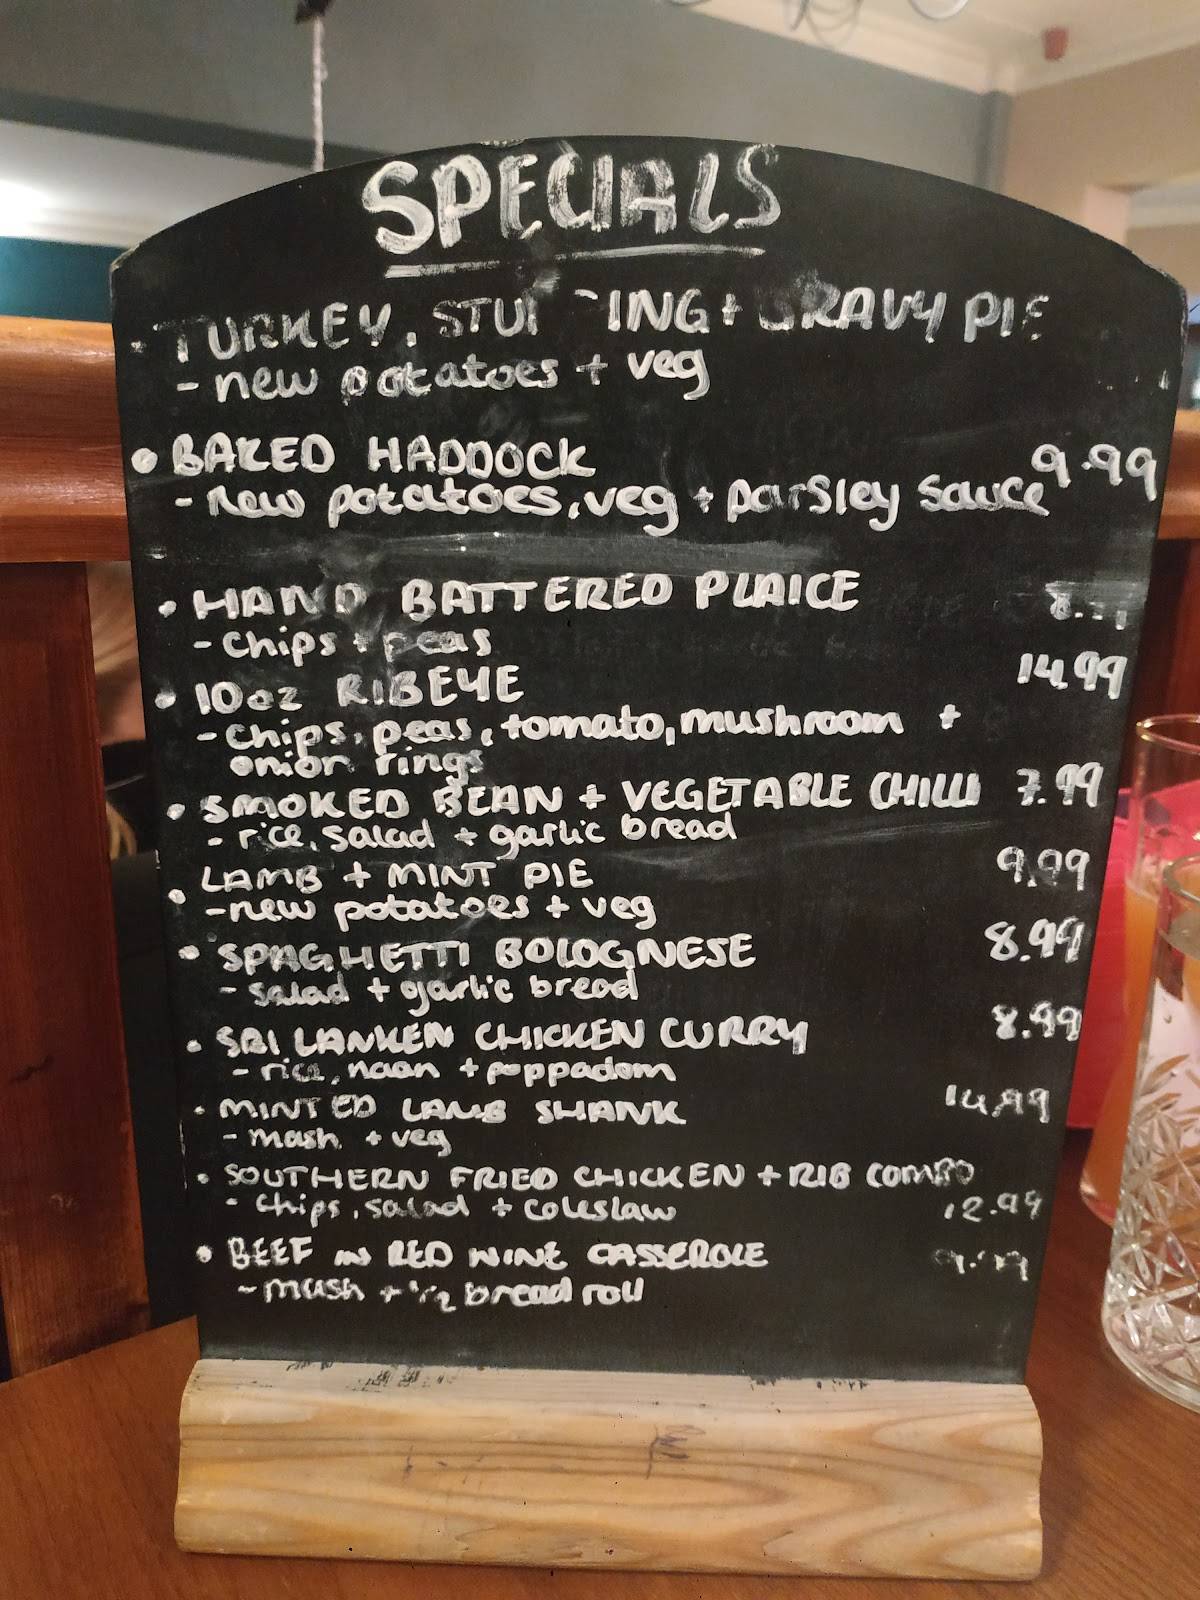 SPECIALS
TURKEY, STUFFING + GRAVY PIE
- new potatoes + veg
• BAKED HADDOCK 9.99
- New potatoes, veg + parsley sauce
• HAND BATTERED PLAICE
- chips + peas
• 10oz RIBEYE 14.99
- chips, peas, tomato, mushroom +
onion rings
• SMOKED BEAN + VEGETABLE CHILLI 7.99
- rice, salad + garlic bread
• LAMB + MINT PIE 9.99
- new potatoes + veg
• SPAGHETTI BOLOGNESE 8.99
- salad + garlic bread
• SRI LANKEN CHICKEN CURRY 8.99
- rice, naan + poppadom
• MINTED LAMB SHANK 14.99
- mash + veg
• SOUTHERN FRIED CHICKEN + RIB COMBO
- chips, salad + coleslaw 12.99
• BEEF IN RED WINE CASSEROLE 9.99
- mash + 1/2 bread roll